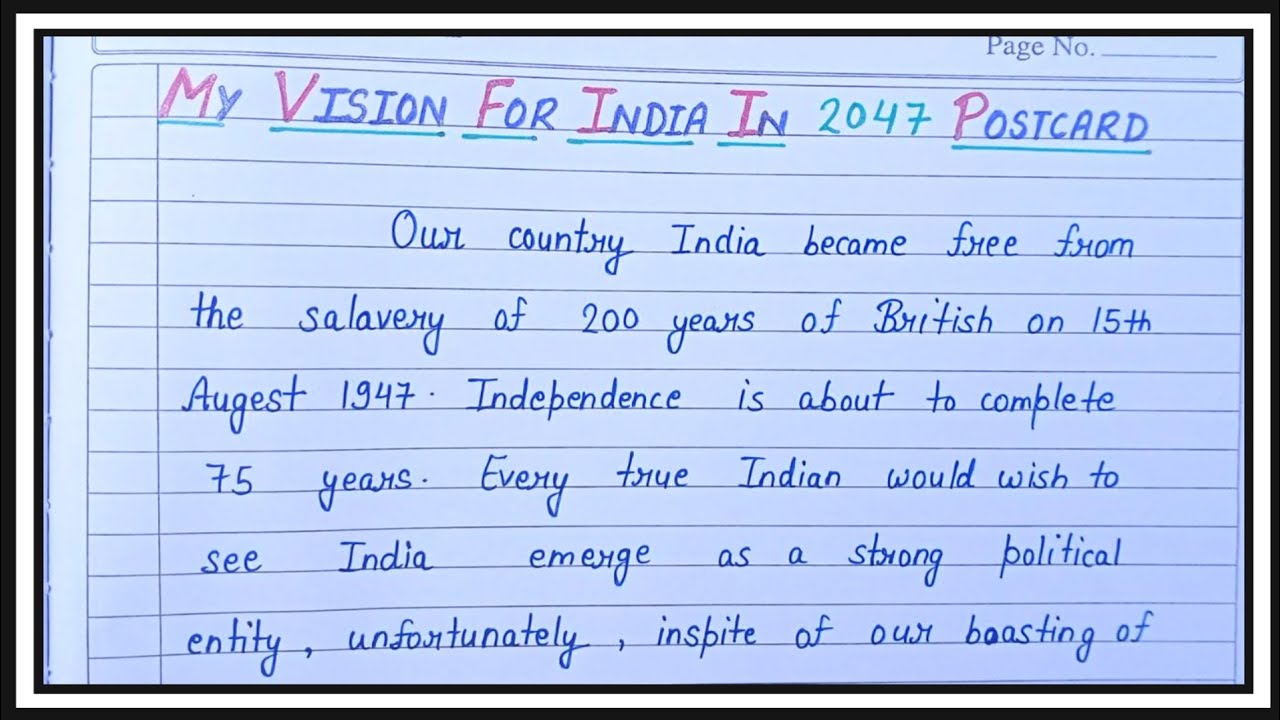 Page No.
MY VISION FOR INDIA IN 2047 POSTCARD
Our country India became free from
the salavery of 200 years of British on 15th
Augest 1947. Independence is about to complete
75 years. Every true Indian would wish to
see India emerge as a strong political
entity, unfortunately, inspite of our boasting of